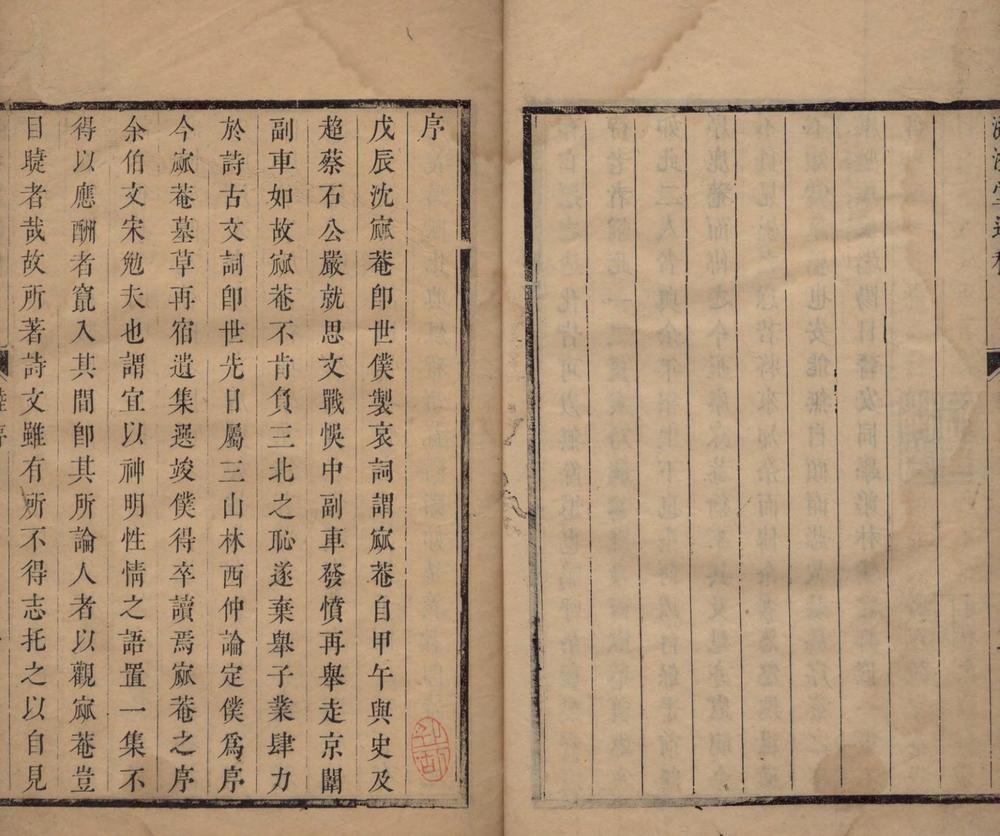 序
戊辰沈寤菴卽世僕製哀詞謂寤菴自甲午與史及
超蔡石公嚴就思文戰悞中副車發憤再舉走京闈
副車如故寤菴不肯負三北之恥遂棄舉子業肆力
於詩古文詞卽世先日屬三山林西仲論定僕爲序
今寤菴墓草再宿遺集選竣僕得卒讀焉寤菴之序
余伯文宋勉夫也謂宜以神明性情之語置一集不
得以應酬者竄入其間卽其所論人者以觀寤菴豈
目㬠者哉故所著詩文雖有所不得志托之以自見